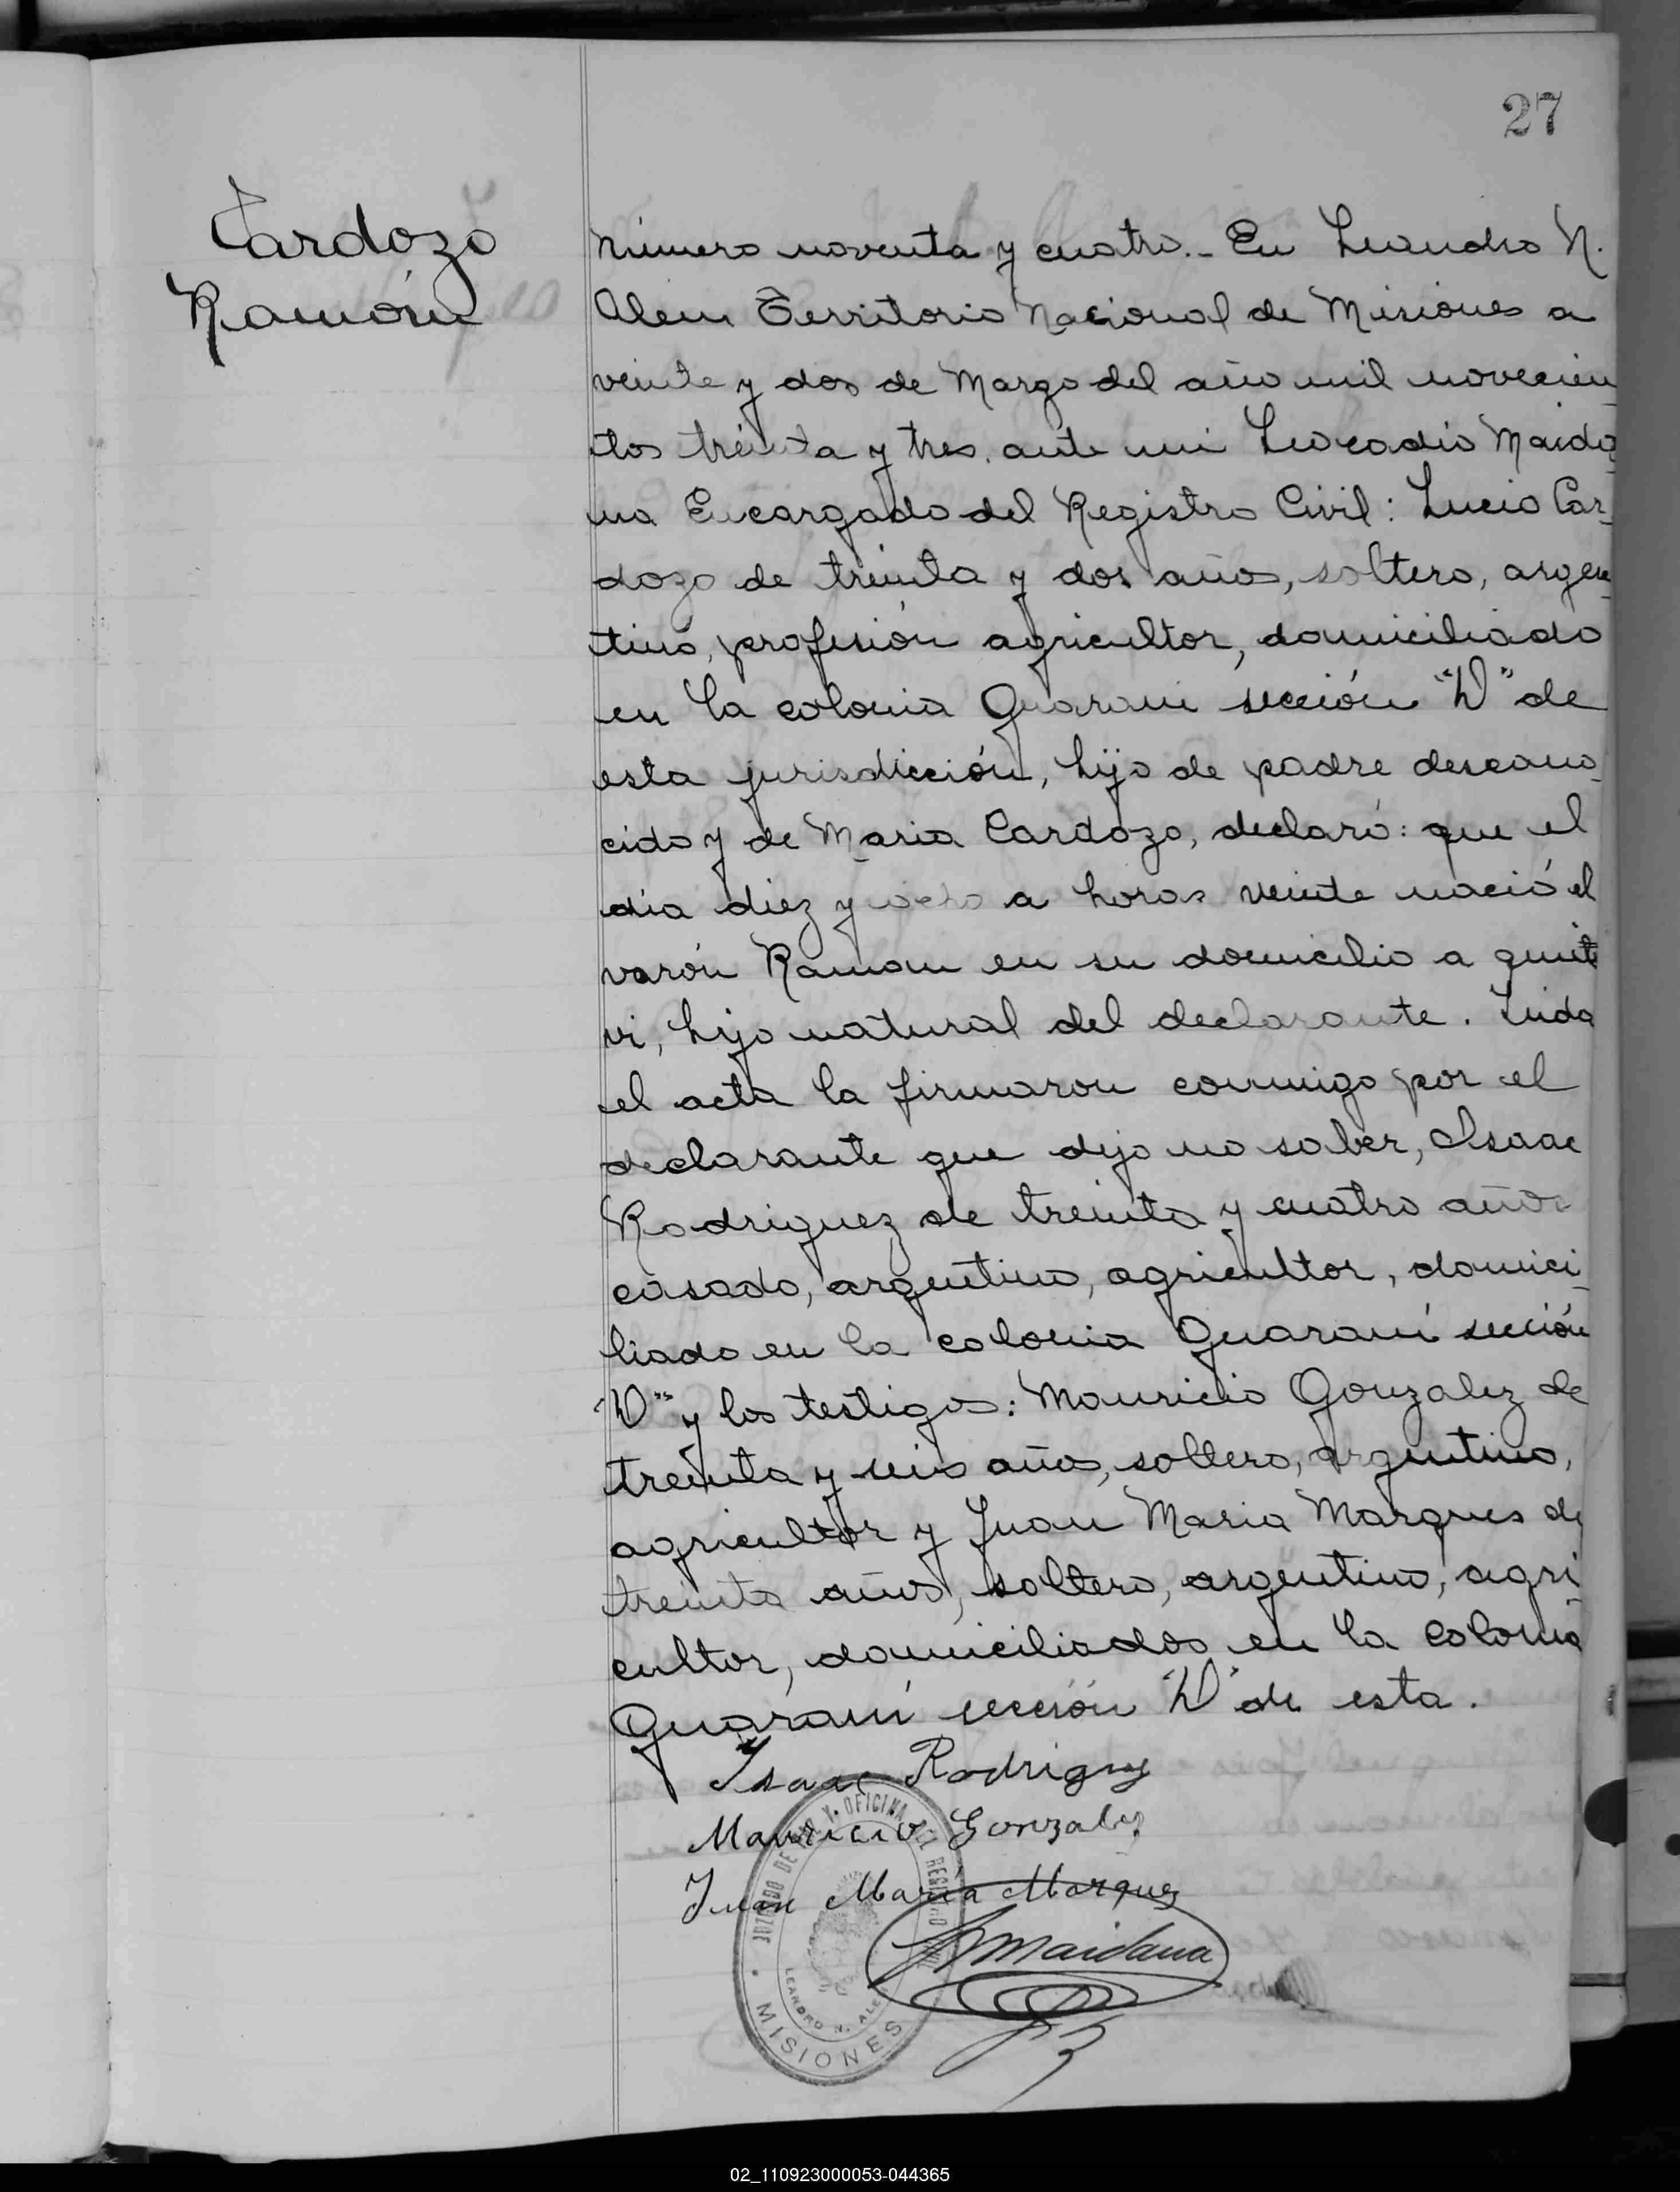 27
Cardozo
Ramón
Número noventa y cuatro.- En Leandro N.
Alem Territorio Nacional de Misiones a
veinte y dos de Marzo del año mil novecien
tos treinta y tres, ante mi Leocadio Maida
na Encargado del Registro Civil: Lucio Car
dozo de treinta y dos años, soltero, argen
tino, profesión agricultor, domiciliado
en la colonia Guarani sección "D" de
esta jurisdicción, hijo de padre descono
cido y de Maria Cardozo, declaró: que el
día diez y ocho a horas veinte nació el
varón Ramon en su domicilio a quien
vi, hijo natural del declarante. Leida
el acta la firmaron conmigo por el
declarante que dijo no saber, Isaac
Rodriguez de treinta y cuatro años
casado, argentino, agricultor, domici
liado en la colonia Guaraní sección
"D" y los testigos: Mauricio Gonzalez de
treinta y seis años, soltero, argentino,
agricultor y Juan Maria Marques de
treinta años, soltero, argentino, agri
cultor, domiciliados en la colonia
Guaraní sección "D" de esta.
Isaac Rodriguez
Mauricio Gonzalez
Juan Maria Marques
Maidana
JUZGADO DE PAZ Y OFICINA DEL REGISTRO
LEANDRO N. ALEM
MISIONES
02_110923000053-044365